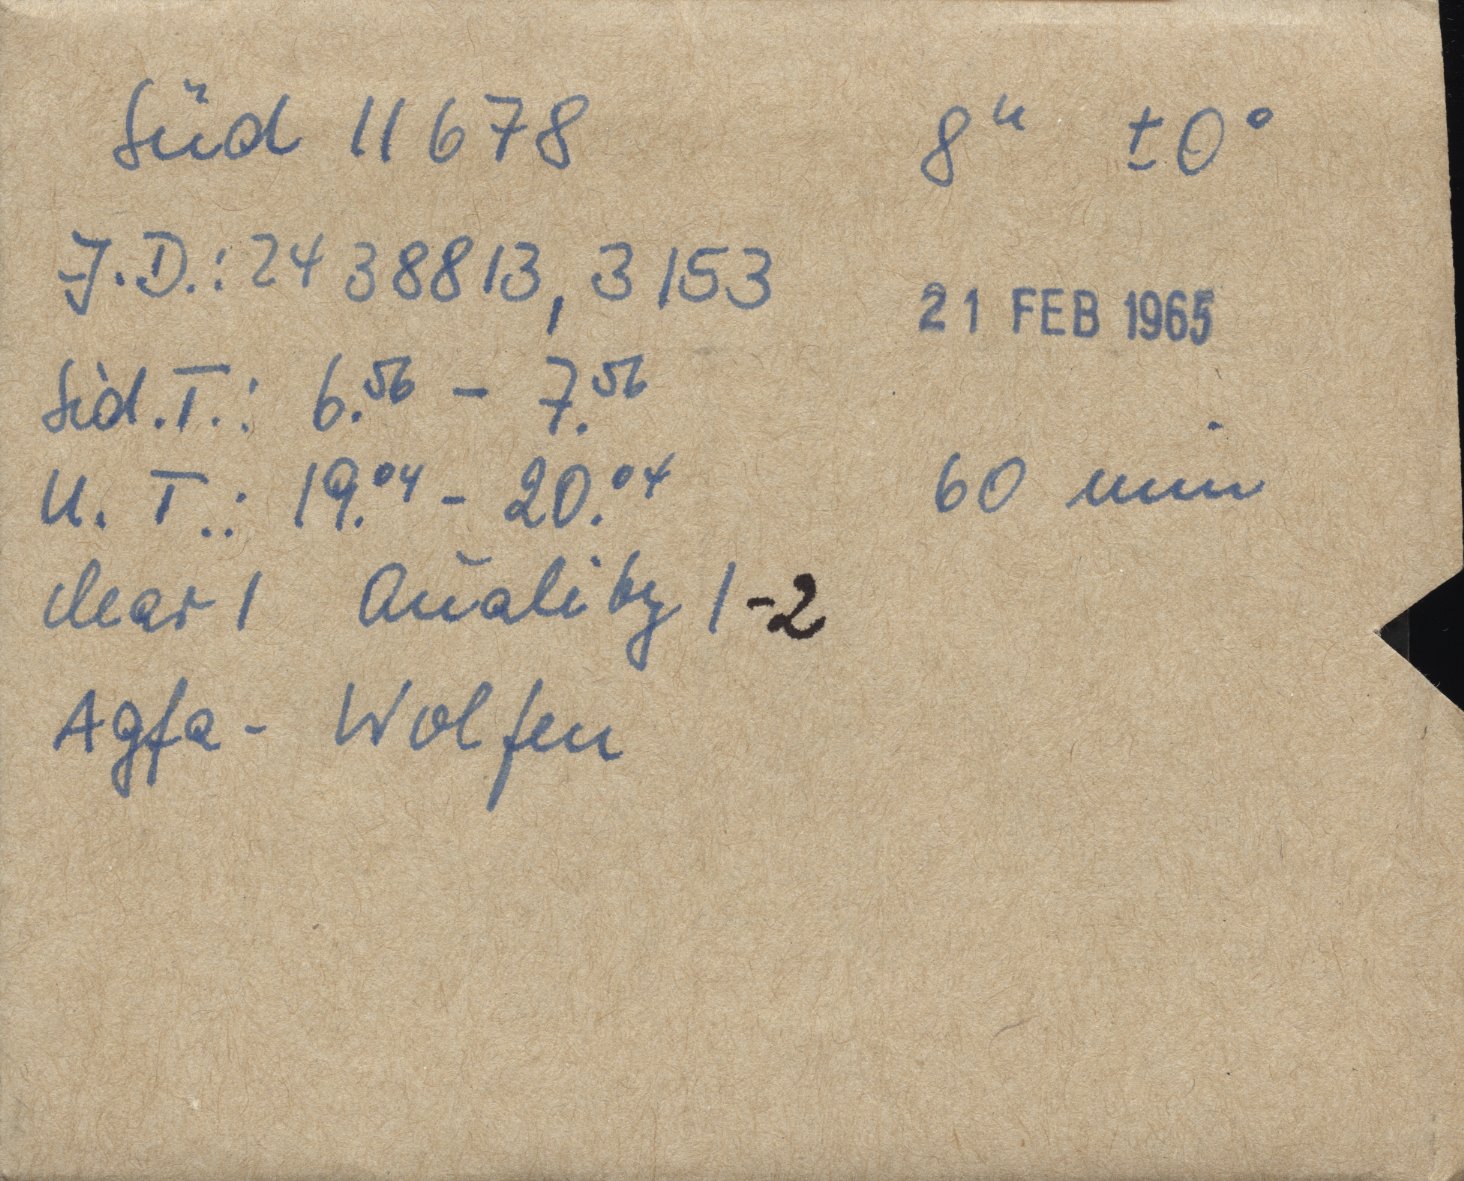 Süd 11678 8ʰ ±0°
J.D.: 2438813,3153
21 FEB 1965
Sid.T.: 6.⁵⁶ - 7.⁵⁶
U.T.: 19.⁰⁴ - 20.⁰⁴ 60 min
clear 1 Quality 1-2
Agfa - Wolfen